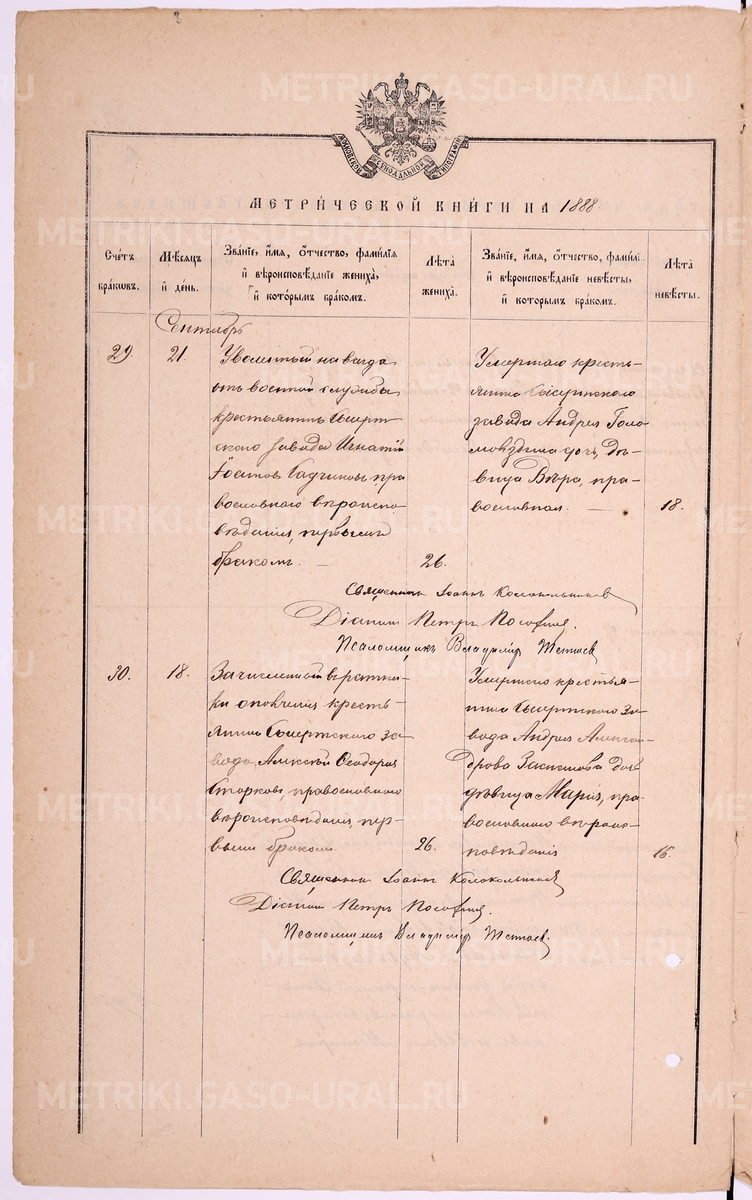 МОСКОВСКОЙ СѴНОДАЛЬНОЙ ТИПОГРАФІИ
МЕТРИ́ЧЕСКОЙ КНИ́ГИ НА 1888
Сче́тъ бра́ковъ.
Мѣ́сяцъ и де́нь.
Зва́ніе, и́мя, о́тчество, фами́лія и вѣроисповѣ́даніе жениха̀, и кото́рымъ бра́комъ.
Лѣ́та жениха̀.
Зва́ніе, и́мя, о́тчество, фами́лі и вѣроисповѣ́даніе невѣ́сты, и кото́рымъ бра́комъ.
Лѣ́та невѣ́сты.
Сентябрь
29. 21.
Уволенный навсегда
отъ военной службы
крестьянинъ Сысерт
скаго завода Игнатій
пра
вославнаго вѣроиспо-
вѣданія, первымъ
бракомъ. 26.
Умершаго кресть-
янина Сысертскаго
завода Андрея Голо
дочь, дѣ-
вица Вѣра, пра-
вославная. 18.
Священникъ Іоаннъ Колокольниковъ
Діаконъ Петръ
Псаломщикъ Владиміръ
30. 18.
Зачисленный въ ратни-
ки ополченія кресть-
янинъ Сысертскаго за
вода, Алексѣй Ѳеодоровъ
православнаго
вѣроисповѣданія, пер-
вымъ бракомъ. 26.
Умершаго крестья-
нина Сысертскаго за-
вода Андрея Алексан-
дрова дочь
дѣвица Марія, пра-
вославнаго вѣроис-
повѣданія 16.
Священникъ Іоаннъ Колокольниковъ
Діаконъ Петръ
Псаломщикъ Владиміръ
METRIKI.GASO-URAL.RU